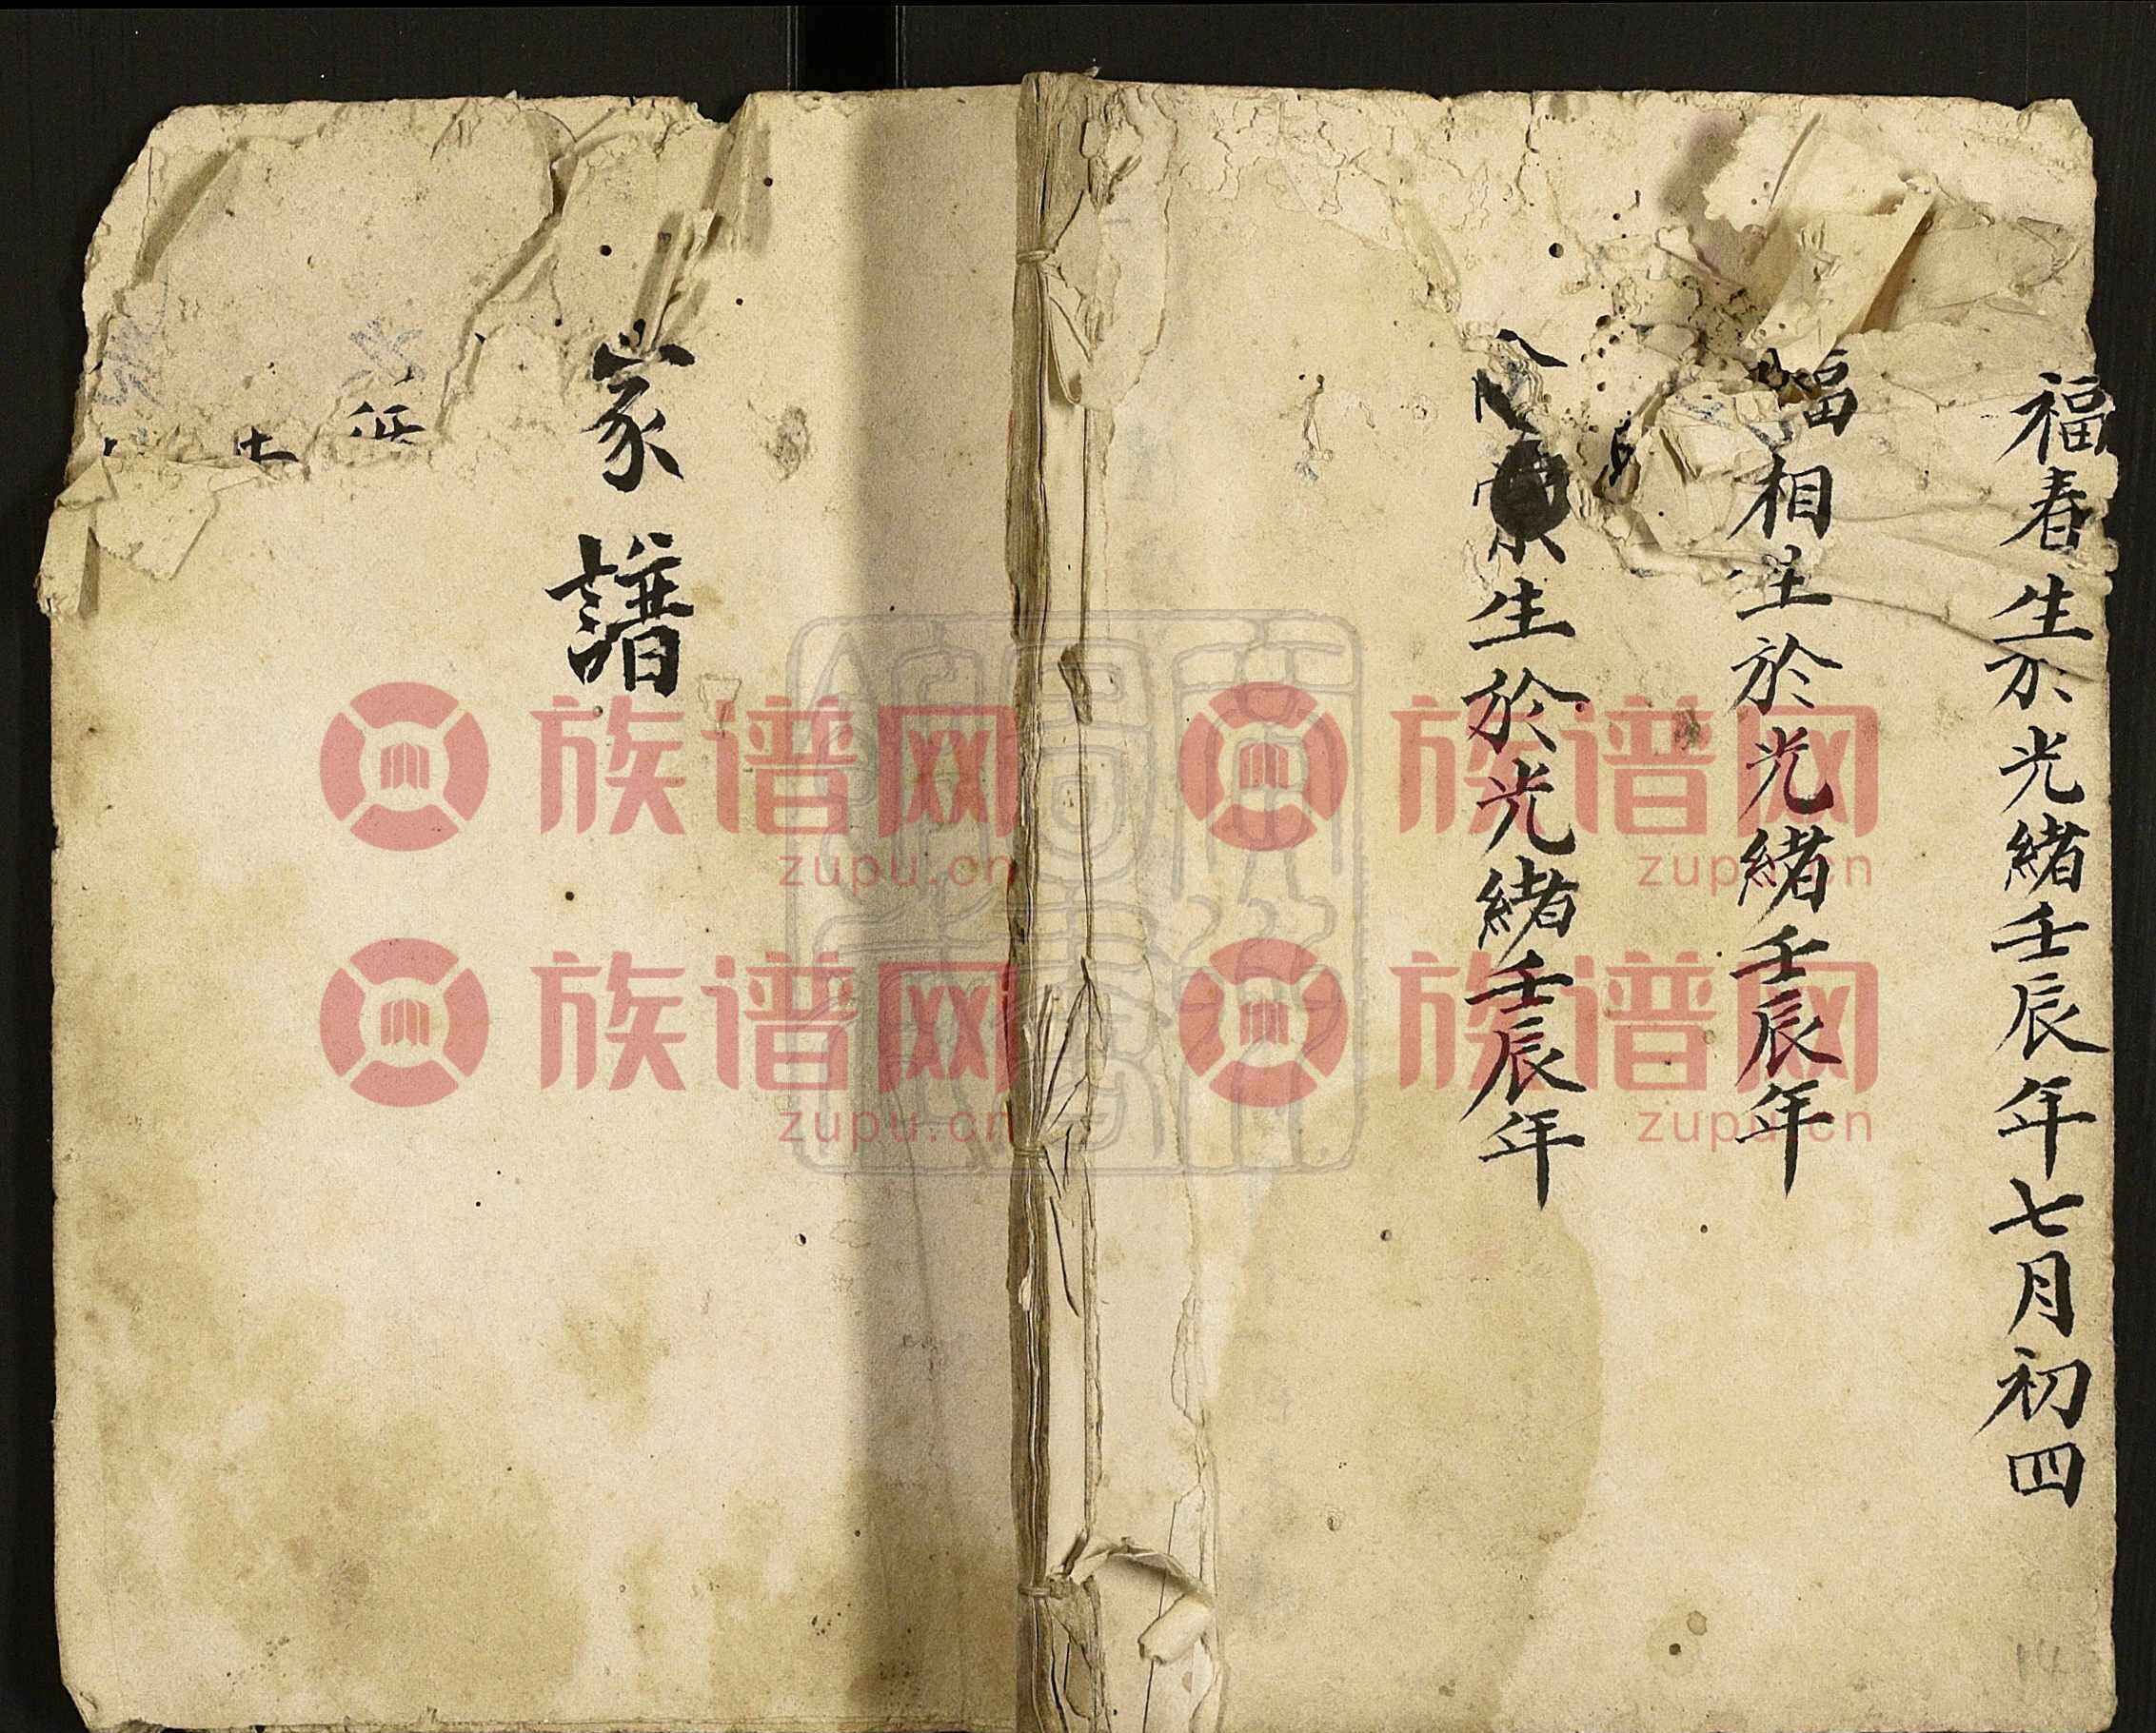 福春生於光緒壬辰年七月初四
福相生於光緒壬辰年
生於光緒壬辰年
家譜
族谱网
zupu.cn
族谱网
zupu.cn
族谱网
zupu.cn
族谱网
zupu.cn